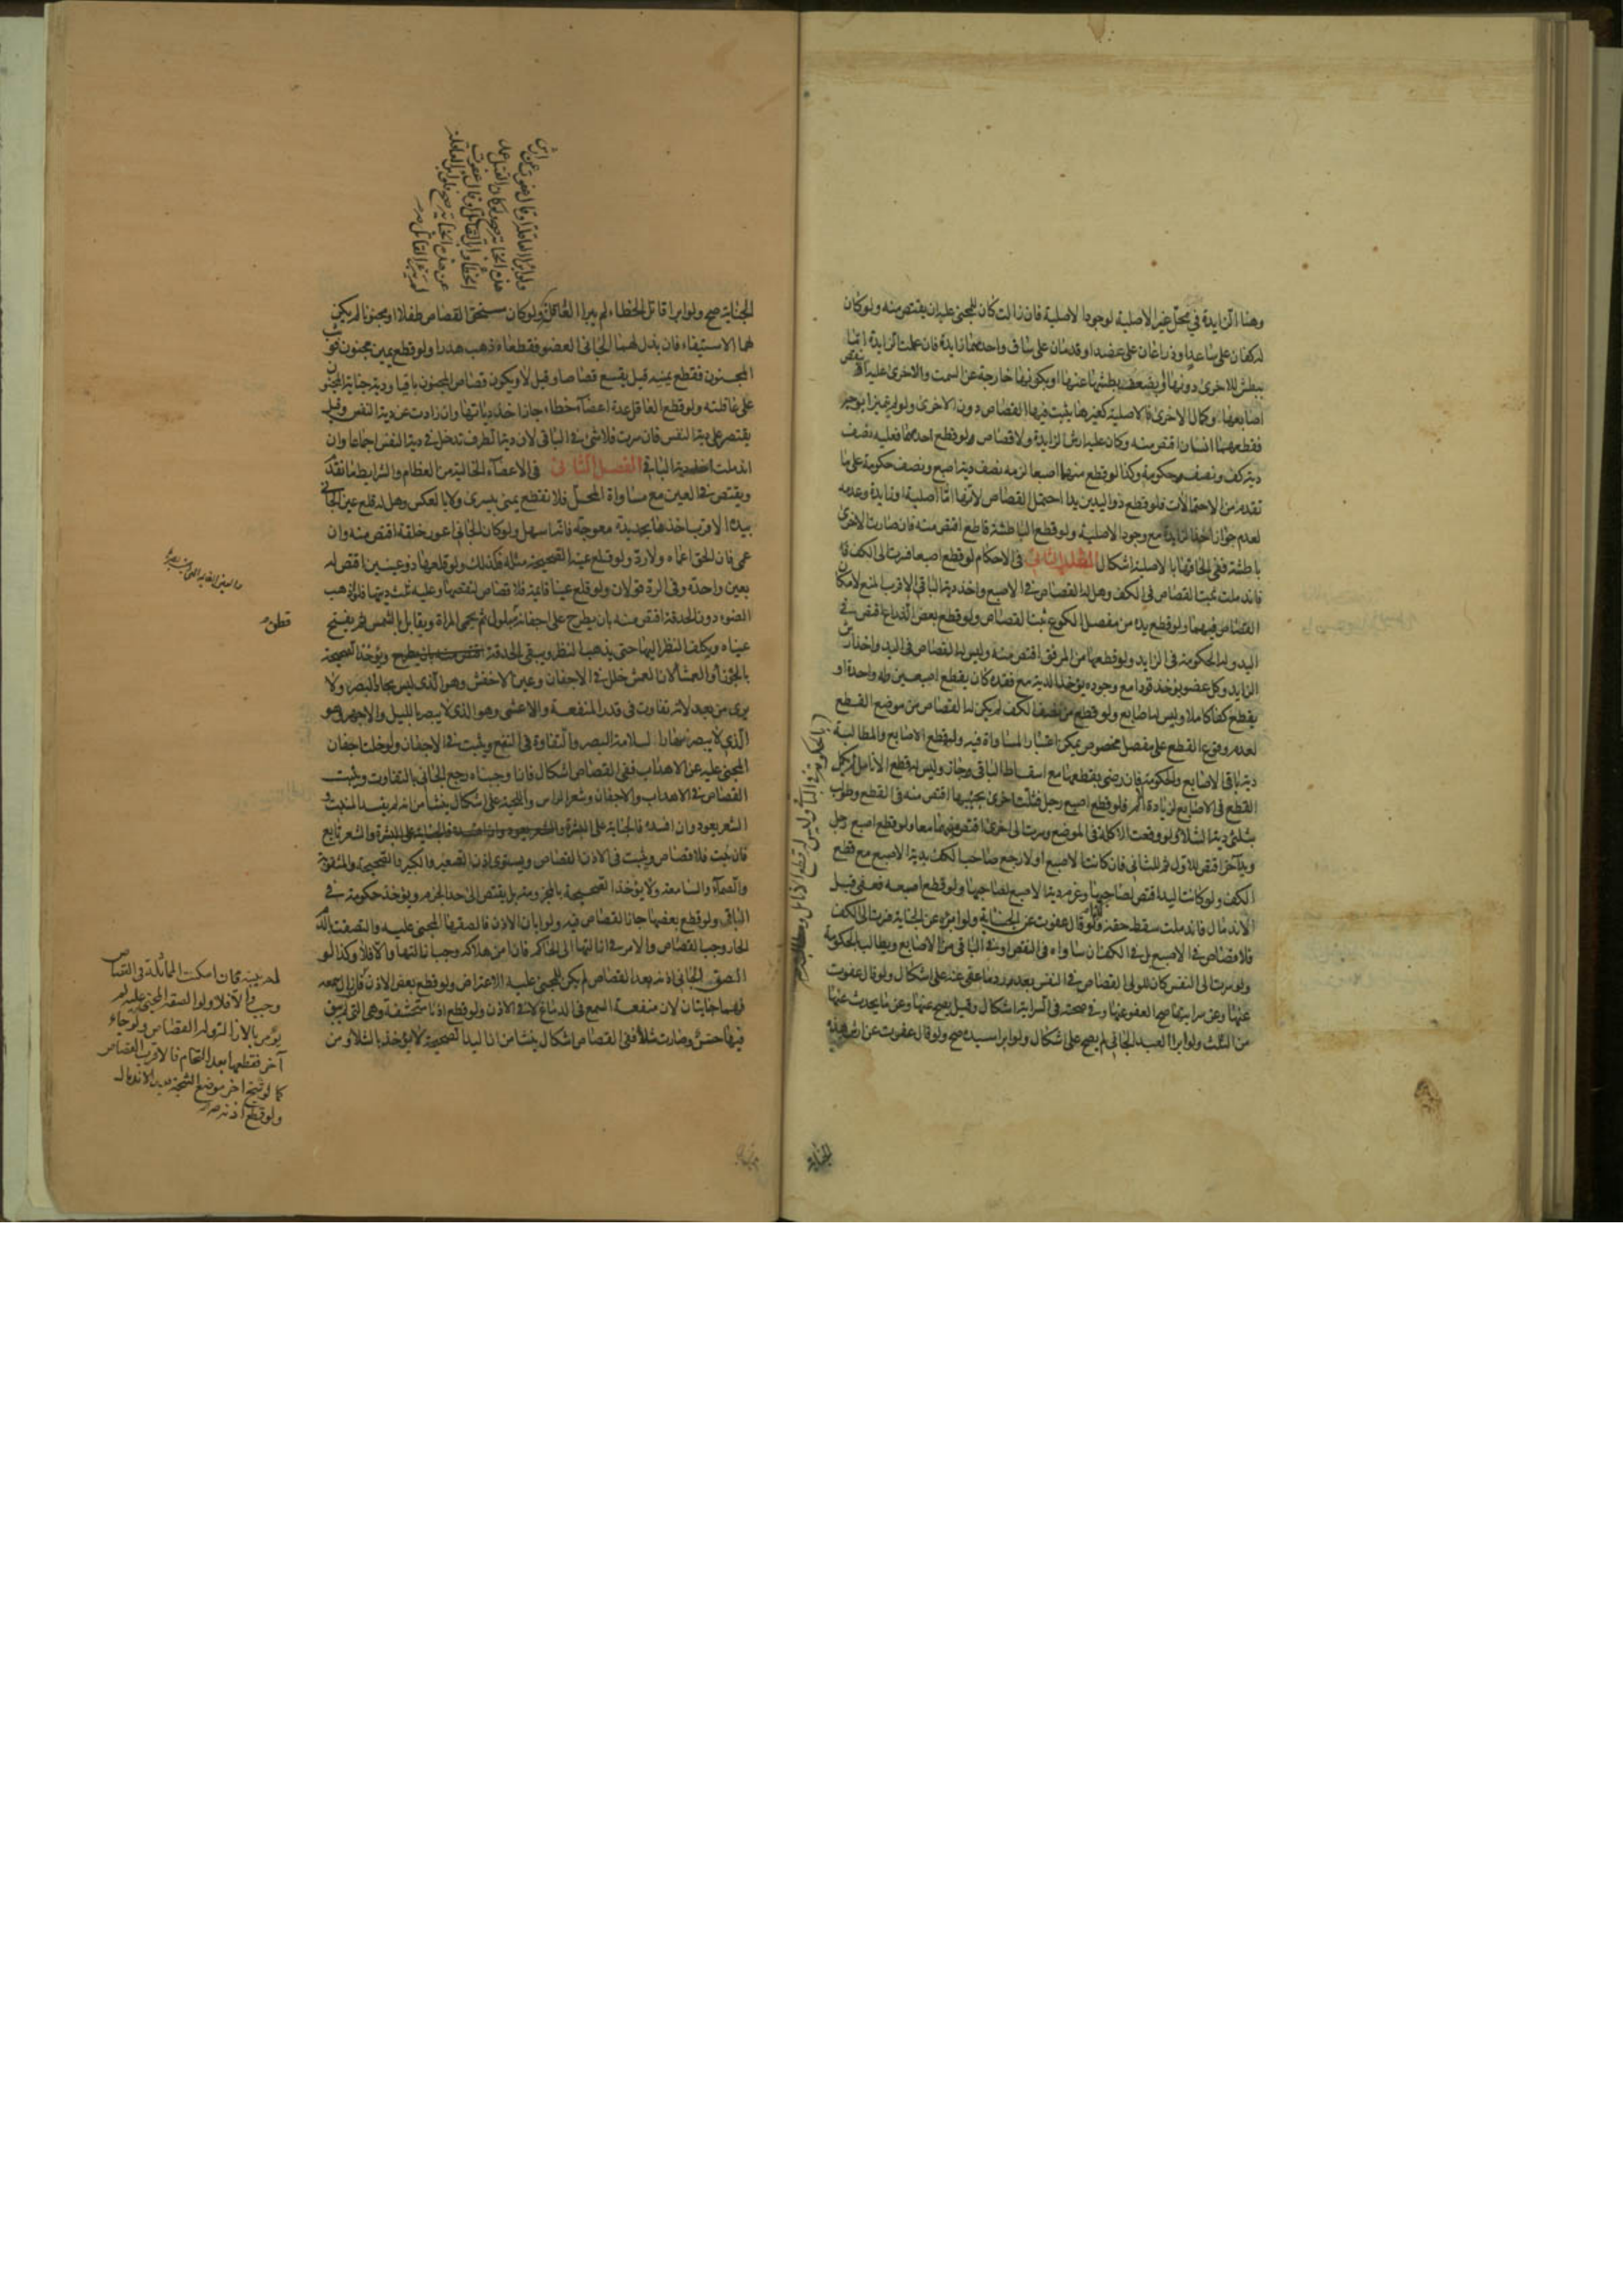 وهنا الزايدة في محل غير الاصلية لوجود الاصلية فان زالت كان للمجني عليه ان يقتص منه ولو كان
له كفان على ساعد او ذراعان على عضد او قدمان على ساق واحدهما زايدة فان علمت الزايدة اما
ببطش الاخرى دونها او بضعف بطشها عنها او بكونها خارجة عن السمت والاخرى عليه او نقص
اصابعها وكمال الاخرى فالاصلية كغيرها يثبت فيها القصاص دون الاخرى ولو لم تتميز
فقطعهما انسان اقتص منه وكان عليه ارش الزايدة ولا قصاص ولو قطع احدهما فعليه نصف
دية كف ونصف حكومة وكذا لو قطع منهما اصبعا لزمه نصف دية اصبع ونصف حكومة على ما
تقدم من الاحتمالات فلو قطع ذو اليدين يدا احتمل القصاص لانها اما اصلية او زايدة وعدمه
لعدم جواز اخذ الزايدة مع وجود الاصلية ولو قطع الباطشة قاطع اقتص منه فان صارت الاخرى
باطشة ففي الحاقها بالاصلية اشكال المطلب الثاني في الاحكام لو قطع اصبعا فسرت الى الكف
فاندملت ثبت القصاص في الكف وهل له القصاص في الاصبع واخذ دية الباقي الاقرب المنع لامكان
القصاص فيهما ولو قطع يده من مفصل الكوع ثبت القصاص ولو قطع بعض الذراع اقتص في
اليد وله الحكومة في الزايد ولو قطعها من المرفق اقتص منه وليس له القصاص في اليد واخذ ارش
الزايد وكل عضو يؤخذ قودا مع وجوده يؤخذ الدية مع فقده كان يقطع اصبعين وله واحدة او
يقطع كفا كاملا وليس له اصابع ولو قطع من نصف الكف لم يكن له القصاص من موضع القطع
لعدم وقوع القطع على مفصل مخصوص يمكن اعتبار المساواة فيه وله قطع الاصابع والمطالبة
دية باقي الاصابع والحكومة فان رضي بقطعها مع اسقاط الباقي جاز وليس له قطع الانامل ثم يكمل
القطع في الاصابع لزيادة الالم فلو قطع اصبع رجل فشلت اخرى بجنبها اقتص منه في القطع وطولب
بثلثي دية الشلاء ولو وقعت الاكلة في الموضع وسرت الى اخرى اقتص فيهما معا ولو قطع اصبع رجل
ويد آخر اقتص للاول ثم للثاني فان كانت الاصبع اولا رجع صاحب الكف بدية الاصبع مع قطع
الكف ولو كانت اليد اقتص لصاحبها وغرم دية الاصبع لصاحبها ولو قطع اصبعه فعفى قبل
الاندمال فاندملت سقط حقه ولو قال عفوت عن الجناية ولو ابرأه عن الجناية فسرت الى الكف
فلا قصاص في الاصبع بل في الكف ان ساواه في النقص او في الباقي من الاصابع ويطالب بالحكومة
ولو سرت الى النفس كان للولي القصاص في النفس بعد رد ما عفى عنه على اشكال ولو قال عفوت
عنها وعن سرايتها صح العفو عنها وفي صحته في السراية اشكال وقيل يصح عنها وعن ما يحدث عنها
من الثلث ولو ابرا العبد الجاني لم يصح على اشكال ولو ابرا سيده صح ولو قال عفوت عن ارش هذه
الجناية
الجناية صح ولو ابرا قاتل الخطاء لم يبرا العاقلة ولو كان مستحق القصاص طفلا او مجنونا لم يكن
لهما الاستيفاء فان بذل لهما الجاني العضو فقطعاه ذهب هدرا ولو قطع يمين مجنون فوثب
المجنون فقطع يمينه قيل يقع قصاصا وقيل لا ويكون قصاص المجنون باقيا ودية جناية المجنون
على عاقلته ولو قطع العاقل عدة اعضاء خطاء جاز اخذ دياتها وان زادت عن دية النفس وقيل
يقتصر على دية النفس فان سرت فلا شئ في الباقي لان دية الطرف تدخل في دية النفس اجماعا وان
اندملت اخذ دية الباقي الفصل الثاني في الاعضاء الخالية من العظام والشرايط ما تقدم
ويقتص في العين مع مساواة المحل فلا تقطع يمنى بيسرى ولا بالعكس وهل له قلع عين الجاني
بيده الاقرب اخذها بحديدة معوجة فانه اسهل ولو كان الجاني اعور خلقة اقتص منه وان
عمي فان الحق اعماه ولا رد ولو قلع عينه الصحيحة مثله فكذلك ولو قلعها ذو عينين اقتص له
بعين واحدة وفي الرد قولان ولو قلع عينا قائمة فلا قصاص لنقصها وعليه ثلث ديتها فلو اذهب
الضوء دون الحدقة اقتص منه بان يطرح على اجفانه قطن مبلول ثم يحمى المراة ويقابل بالشمس ثم يفتح
عيناه ويكلف النظر اليها حتى يذهب النظر ويبقى الحدقة ويؤخذ الصحيحة
بالحولاء والعمشاء لان العمش خلل في الاجفان وعين الاخفش وهو الذي ليس بحاد البصر ولا
يرى من بعيد لانه تفاوت في قدر المنفعة والاعشى وهو الذي لا يبصر بالليل والاجهر وهو
الذي لا يبصر نهارا لسلامة البصر والتفاوت في النفع ويثبت في الاجفان ولو خلت اجفان
المجني عليه عن الاهداب ففي القصاص اشكال فان اوجبناه رجع الجاني بالتفاوت ويثبت
القصاص في الاهداب والاجفان وشعر الراس واللحية على اشكال ينشا من انه لم يفسد المنبت و
الشعر يعود وان افسده فالجناية على البشرة والشعر تابع
فان نبت فلا قصاص ويثبت في الاذن القصاص ويستوي اذن الصغير والكبير والصحيحة والمثقوبة
والصماء والسامعة ولا يؤخذ الصحيحة بالمخرومة بل يقتص الى حد الخرم ويؤخذ حكومة في
الباقي ولو قطع بعضها جاز القصاص فيه ولو ابان الاذن فالصقها المجني عليه والتصقت بالدم
الحار وجب القصاص والامر في ازالتها الى الحاكم فان امن هلاكه وجب ازالتها والا فلا وكذا لو
الصق الجاني اذنه بعد القصاص لم يكن للمجني عليه الاعتراض ولو قطع بعض الاذن فازال سمعه
فهما جنايتان لان منفعة السمع في الدماغ لا في الاذن ولو قطع اذنا مستحشفة وهي التي لم يبق
فيها حس وصارت شلاء ففي القصاص اشكال ينشا من ان اليد الصحيحة لا تؤخذ بالشلاء ومن
ولو ابرا العاقلة او قال عفوت عن ارش
هذه الجناية صح ولو كان القتل عمد
الخطا وابرا القاتل او قال عفوت
عن هذه الجناية صح ولو ابرا العاقلة
لم يبر القاتل صح
قطن
لم يبنه فان امكنت المماثلة في القصاص
وجب والا فلا ولو الصقه المجني عليه لم
يؤمر بالازالة وله القصاص ولو جاء
آخر فقطعها بعد الالتحام فالاقرب القصاص
كما لو شج اخر موضع الشجة بعد الاندمال
ولو قطع اذنه صح
بالحكومة في الباقي وليس له قطع الانامل و